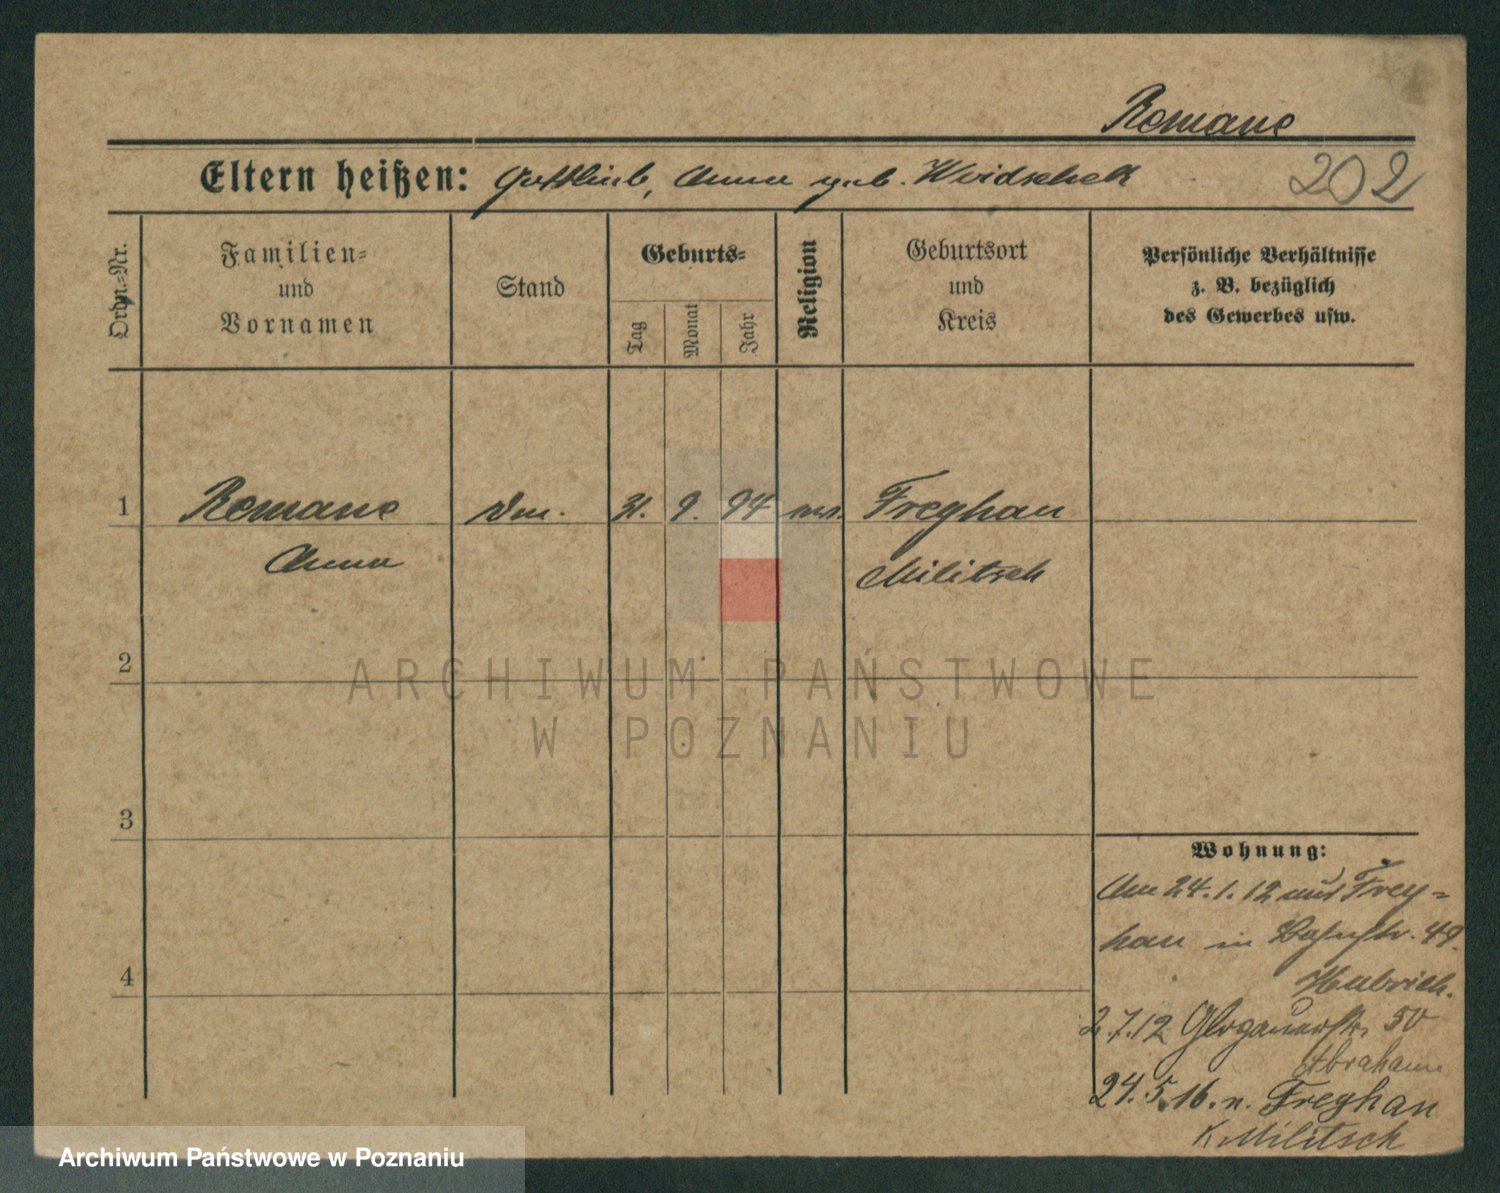 Romane
Eltern heißen: Gottlieb, Anna geb. Weidschek
202
Ordn.=Nr.
Familien=
und
Vornamen
Stand
Geburts=
Tag
Monat
Jahr
Religion
Geburtsort
und
Kreis
Persönliche Verhältnisse
z. B. bezüglich
des Gewerbes usw.
1 Romane 9. 94 Freyhan
Anna Militsch
2
ARCHIWUM PAŃSTWOWE
W POZNANIU
3
Wohnung:
Am 24.1.12 aus Frey=
han in Bahnstr. 49.
Hubrich.
4
2.7.12 Glogauerstr. 50
Abraham
24.5.16. n. Freyhan
K. Militsch
Archiwum Państwowe w Poznaniu